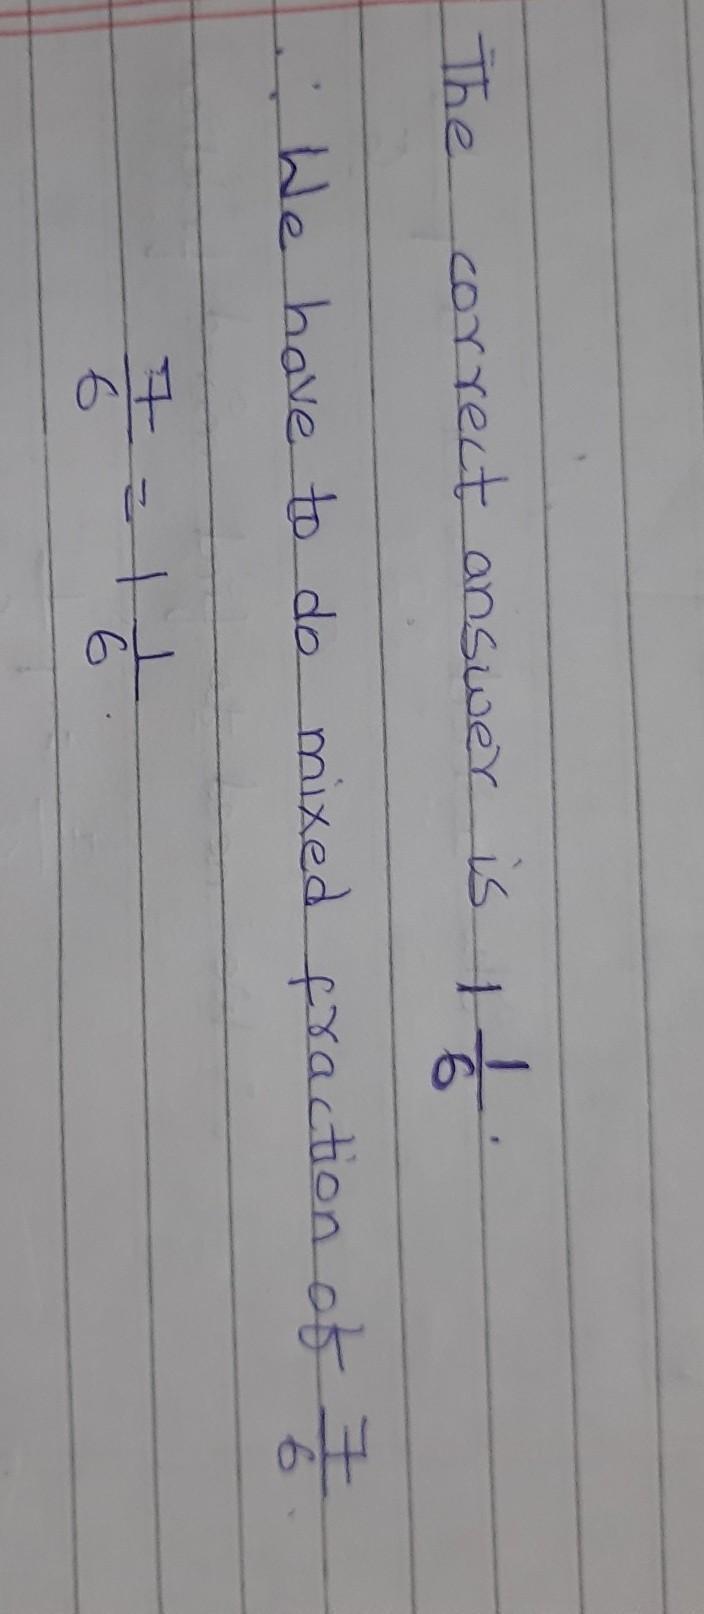 The correct answer is 1 1/6.
∴ We have to do mixed fraction of 7/6.
7/6 = 1 1/6.